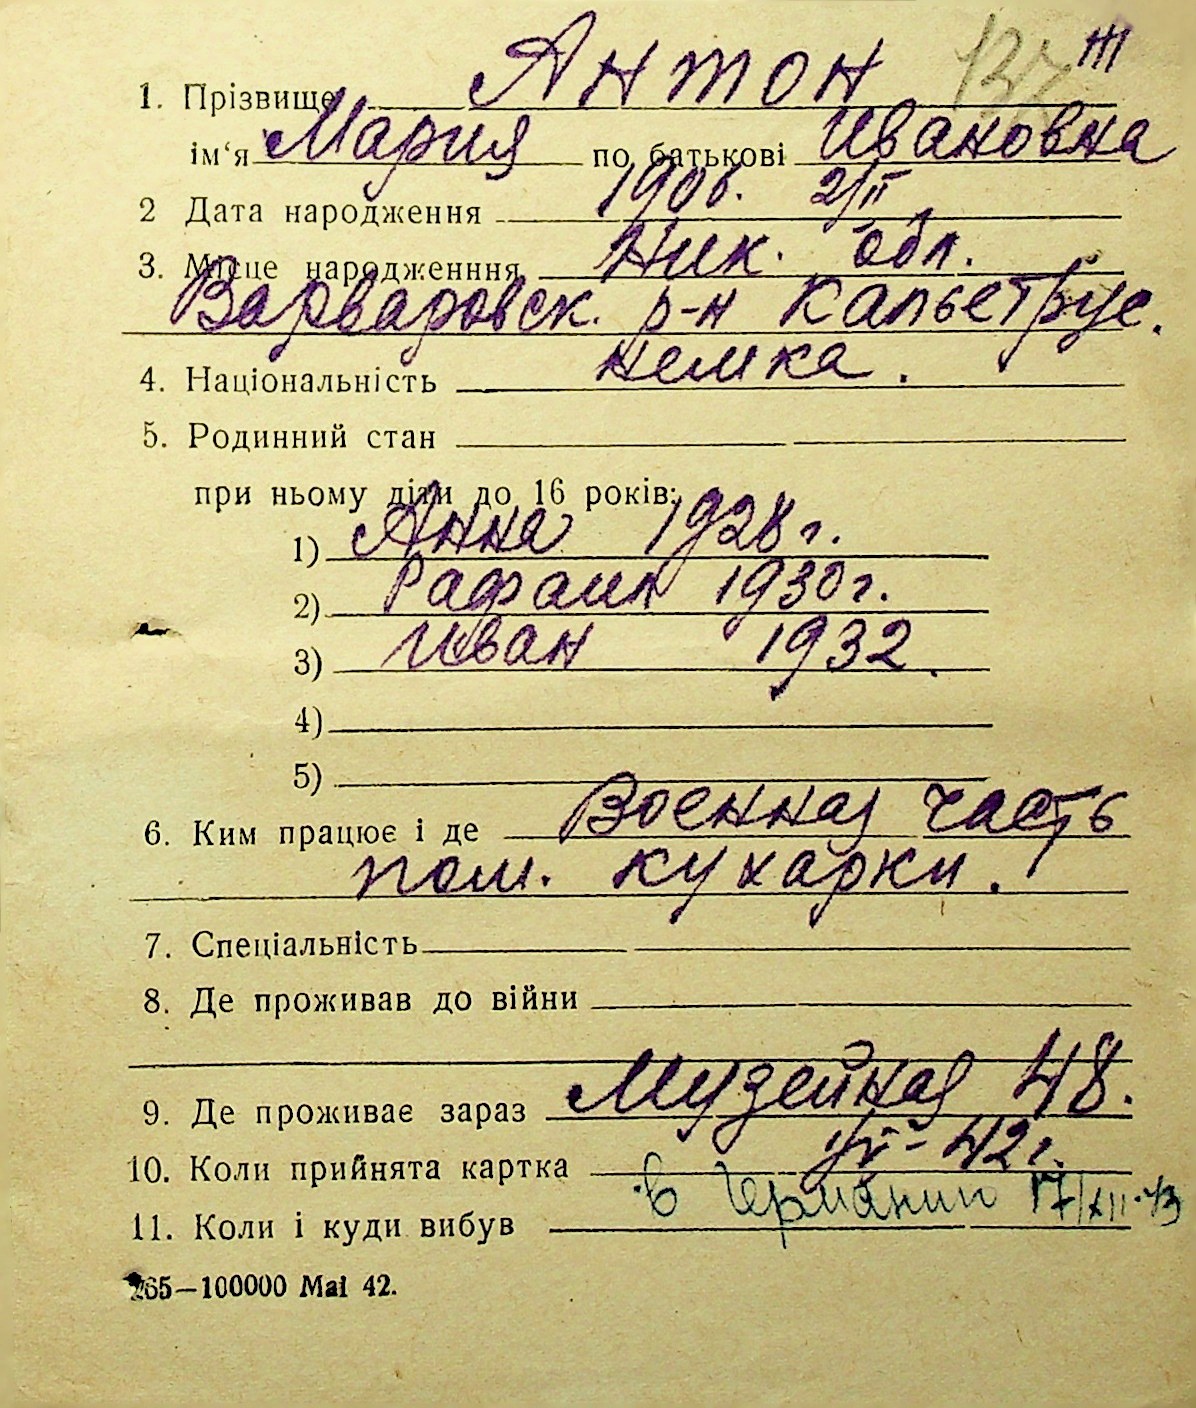 137 III
1. Прізвище Антон
ім‘я Мария по батькові Ивановна
2 Дата народження 1906. 2/II
3. Місце народженння Ник. обл.
Варваровск. р-н Капьетрус.
4. Національність немка.
5. Родинний стан
при ньому діти до 16 років:
1) Анна 1928 г.
2) Рафаил 1930 г.
3) Иван 1932.
4)
5)
6. Ким працює і де Военная часть
пом. кухарки.
7. Спеціальність
8. Де проживав до війни
9. Де проживає зараз Музейная 48.
10. Коли прийнята картка - 42 г.
11. Коли і куди вибув в Германии 17/XII-43
265—100000 Mai 42.